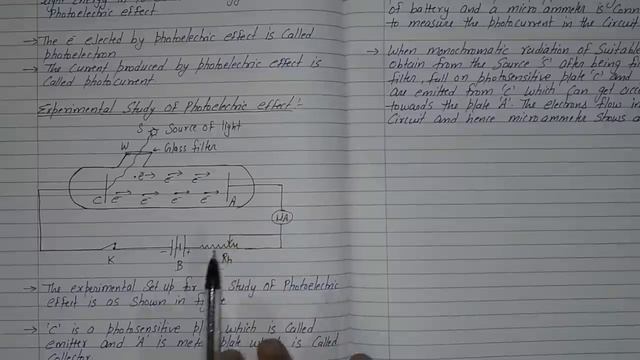 Photoelectric effect
→ The e⁻ ejected by photoelectric effect is Called
photoelectron
→ The Current produced by photoelectric effect is
Called photocurrent
Experimental Study of Photoelectric effect:-
S
Source of light
W
Glass filter
e⁻ e⁻ e⁻
C e⁻ e⁻ e⁻ e⁻ A
μA
K
- +
B
Rh
→ The experimental Set up for Study of Photoelectric
effect is as Shown in
→ 'C' is a photosensitive which is Called
emitter and 'A' is which is Called
Collector
of battery and a micro ammeter is
to measure the photocurrent in the Circuit
→ When monochromatic radiation of Suitable
obtain from the Source 'S' after being
filter, fall on photosensitive plate 'C' and
are emitted from 'C' which Can get
towards the plate 'A'. The electrons flow in
Circuit and hence microammeter Shows a